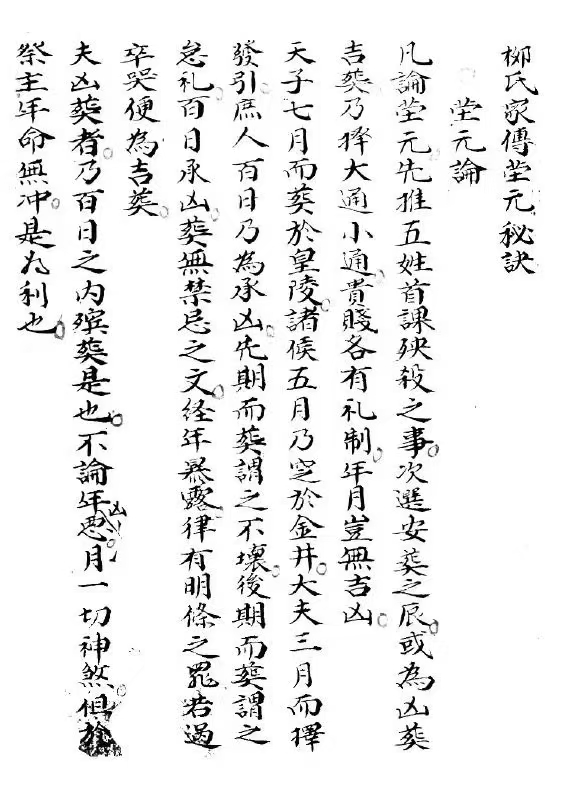 柳氏家傳茔元秘訣
茔元論
凡論茔元先推五姓首課殃殺之事次選安葬之辰或為凶葬
吉葬乃擇大通小通貴賤各有礼制年月豈無吉凶
天子七月而葬於皇陵諸侯五月乃窆於金井大夫三月而擇
發引庶人百日乃為承凶先期而葬謂之不壞後期而葬謂之
怠礼百日承凶葬無禁忌之文経年暴露律有明條之罪若過
卒哭便為吉葬
夫凶葬者乃百日之内殯葬是也不論年凶月一切神煞俱
祭主年命無冲是为利也